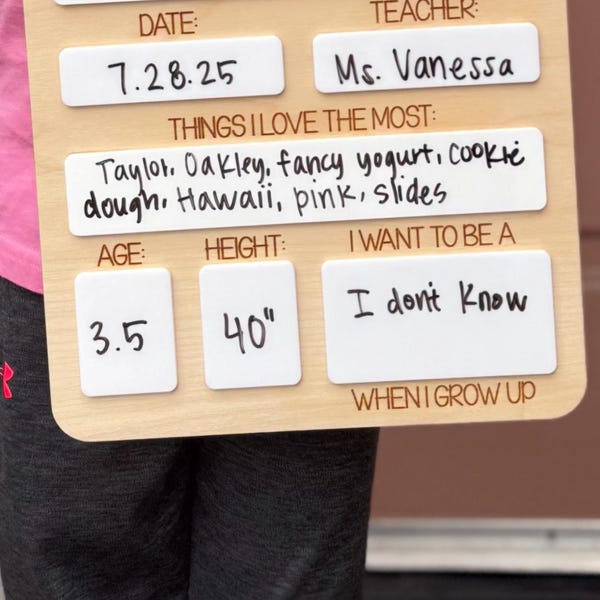 DATE: TEACHER:
7.28.25 Ms. Vanessa
THINGS I LOVE THE MOST:
Taylor, Oakley, fancy yogurt, cookie
dough, Hawaii, pink, slides
AGE: HEIGHT: I WANT TO BE A
3.5 40" I don't know
WHEN I GROW UP